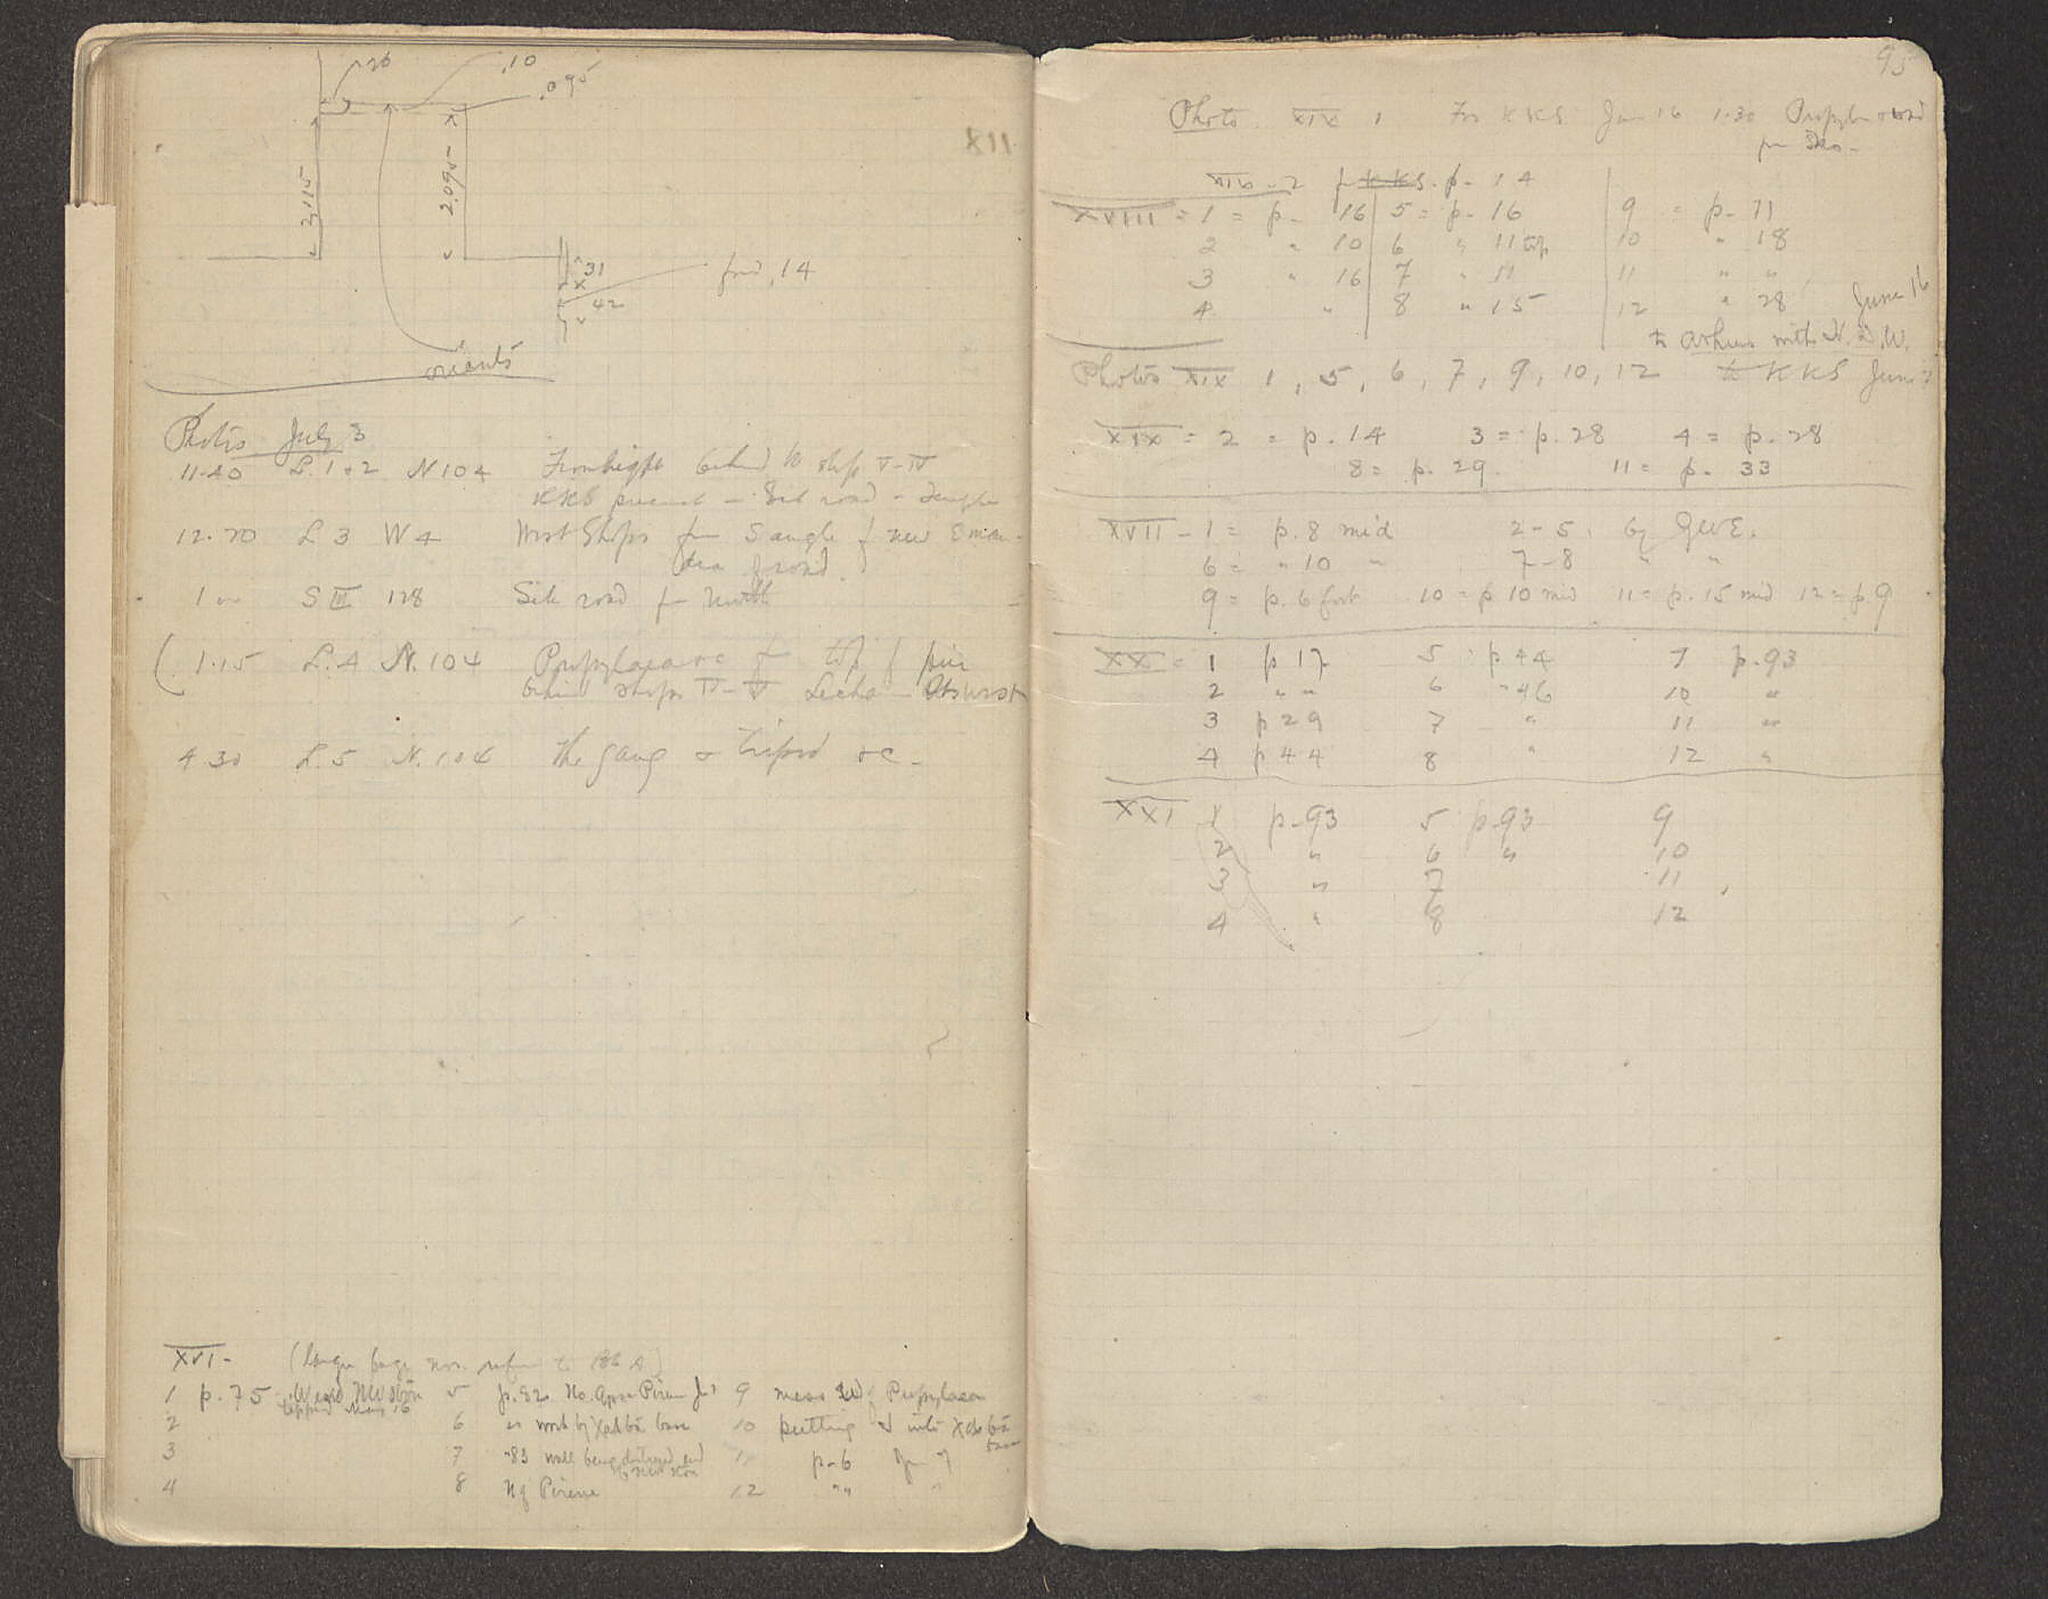 .26
.10
.095
2,115
2.095
31
42
find, 14
orients
Photos July 3
11.40 L. 1+2 N 104 From height behind W shops V-IV
KKS precinct - Side road - Temple
12.20 L 3 W 4 West Shops from S angle of new Exca-
of road.
1 S III 128 Side road from North
(1.15 L. 4 N. 104 Propylaea +c from top of pier
behind shops IV-V Lecha-
4.30 L. 5 N. 104 The gang + tripod +c -
XVI - (Large page nos. refer to A)
1 p. 75 5 p. 82 No. Apse Pirene 9 meas Propylaea
2 6 " work by base 10 putting into
3 7 " 83 wall being 11 p-6 Jun 7
4 8 N of Pirene 12 " " "
95
Photo XIX 1 For KKS Jun 16 1.30 Propylaea + road
from
XIX - 2 f KKS. p- 14
XVIII = 1 = p- 16 5 = p- 16 9 = p- 11
2 " 10 6 " 11 top 10 " 18
3 " 16 7 " 11 11 " "
4 " 8 " 15 12 " 28 June 16
to Athens with H. D. W.
Photos XIX 1, 5, 6, 7, 9, 10, 12 to KKS June
XIX = 2 = p. 14 3 = p. 28 4 = p. 28
8 = p. 29. 11 = p- 33
XVII - 1 = p. 8 mid 2-5. by GWE.
6 = " 10 " 7-8 " "
9 = p. 6 foot 10 = p 10 mid 11 = p. 15 mid 12 = p. 9
XX = 1 p 17 5 p 44 9 p. 93
2 " " 6 " 46 10 "
3 p 29 7 " 11 "
4 p 44 8 " 12 "
XXI 1 p-93 5 p-93 9
2 " 6 " 10
3 " 7 11
4 " 8 12